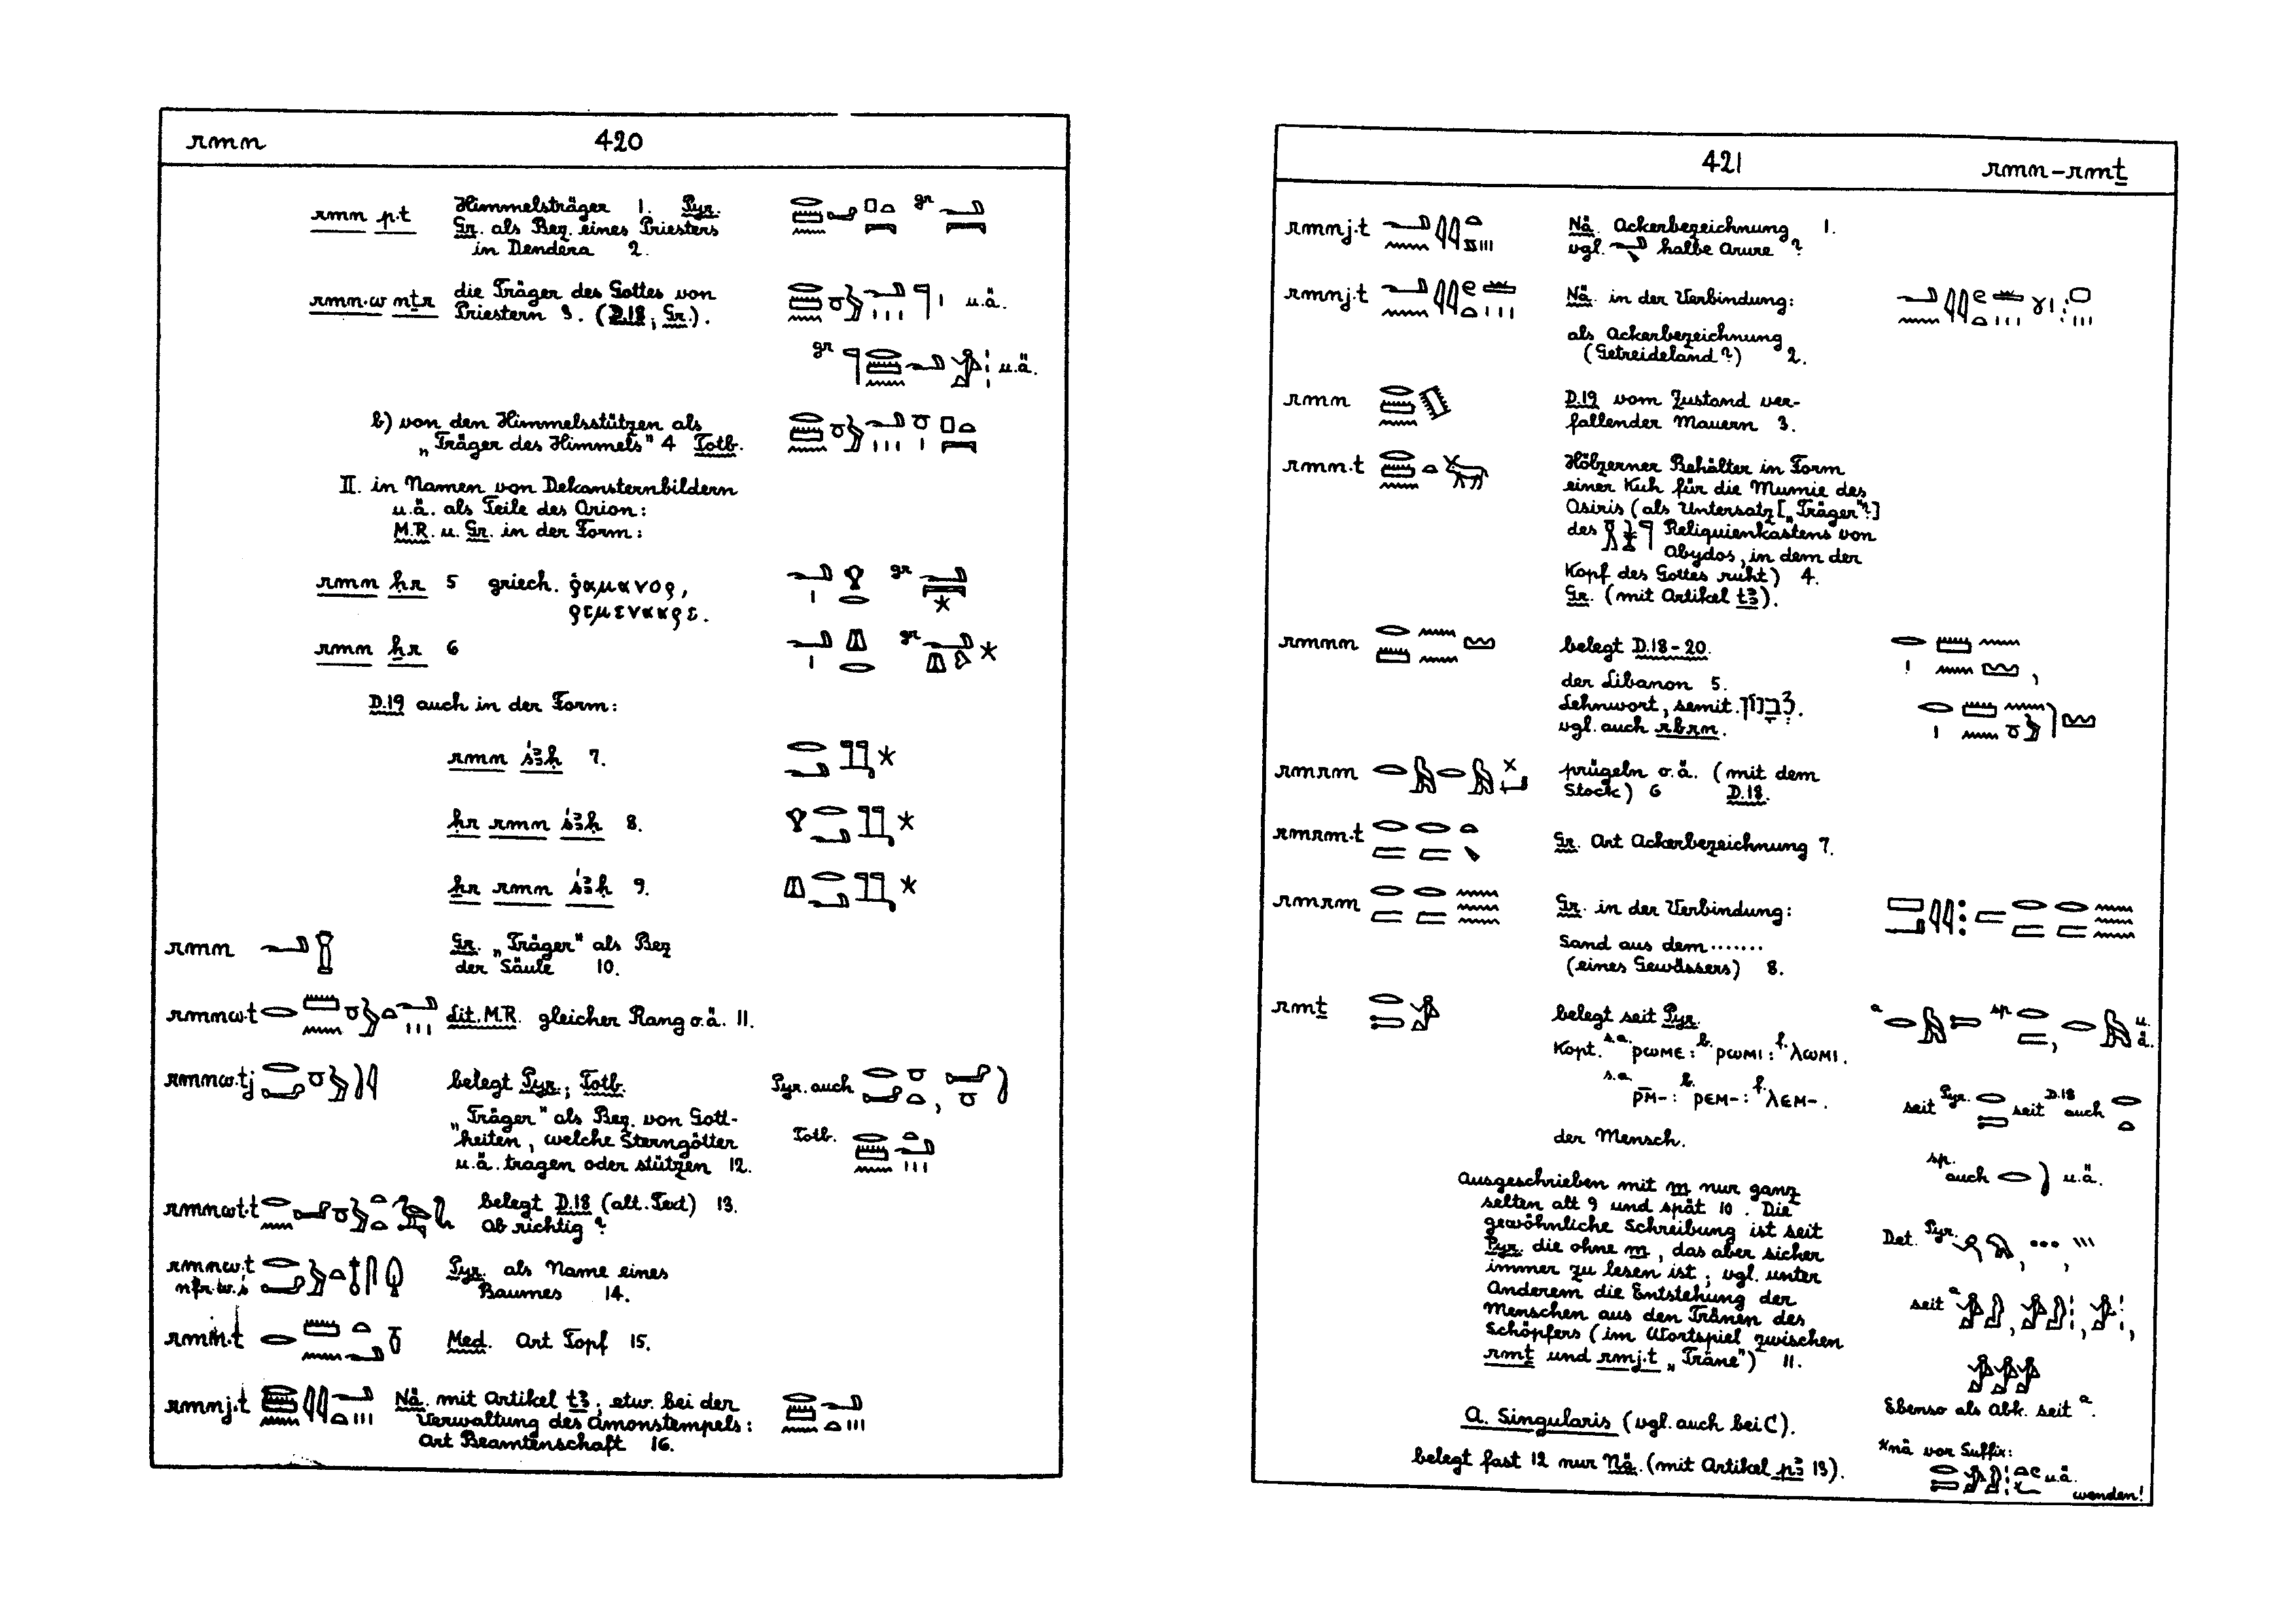 rmn 420
rmn p.t Himmelsträger 1. Pyr.
Gr. als Bez. eines Priesters
in Dendera 2.
gr
rmn.w nṯr die Träger des Gottes von
Priestern 3. (D.18; Gr.).
u.ä.
gr u.ä.
b) von den Himmelsstützen als
„Träger des Himmels" 4 Totb.
II. in Namen von Dekansternbildern
u.ä. als Teile des Orion:
M.R. u. Gr. in der Form:
rmn ḥr 5 griech. ῥαμανος,
ρεμενααρε.
gr
rmn ẖr 6
gr
D.19 auch in der Form:
rmn śꜣḥ 7.
ḥr rmn śꜣḥ 8.
ẖr rmn śꜣḥ 9.
rmn Gr. „Träger" als Bez
der Säule 10.
rmnw.t Lit. M.R. gleicher Rang o.ä. 11.
rmnw.tj belegt Pyr.; Totb.
Pyr. auch
„Träger" als Bez. von Gott-
heiten, welche Sterngötter
u.ä. tragen oder stützen 12.
Totb.
rmnwt.t belegt D.18 (alt. Text) 13.
Ob richtig?
rmnw.t
nfr.w.ś Pyr. als Name eines
Baumes 14.
rmn.t Med. Art Topf 15.
rmnj.t Nä. mit Artikel tꜣ; etw. bei der
Verwaltung des Amonstempels:
Art Beamtenschaft 16.
421 rmn–rmṯ
rmnj.t Nä. Ackerbezeichnung 1.
vgl. halbe Arure?
rmnj.t Nä. in der Verbindung:
als Ackerbezeichnung
(Getreideland?) 2.
rmn D.19 vom Zustand ver-
fallender Mauern 3.
rmn.t Hölzerner Behälter in Form
einer Kuh für die Mumie des
Osiris (als Untersatz [„Träger"?]
des Reliquienkastens von
Abydos, in dem der
Kopf des Gottes ruht) 4.
Gr. (mit Artikel tꜣ).
rmnn belegt D.18-20.
der Libanon 5.
Lehnwort, semit. לְבָנוֹן.
vgl. auch rbrn.
rmrm prügeln o.ä. (mit dem
Stock) 6 D.18.
rmrm.t Gr. Art Ackerbezeichnung 7.
rmrm Gr. in der Verbindung:
Sand aus dem .......
(eines Gewässers) 8.
rmṯ belegt seit Pyr.
a sp u.ä.
Kopt. s.a. ⲣⲱⲙⲉ: b. ⲣⲱⲙⲓ: f. ⲗⲱⲙⲓ.
s.a. ⲣⲙ̄-: b. ⲣⲉⲙ-: f. ⲗⲉⲙ-.
seit Pyr. seit D.18 auch
der Mensch.
sp. auch u.ä.
Ausgeschrieben mit m nur ganz
selten alt 9 und spät 10. Die
gewöhnliche Schreibung ist seit
Pyr. die ohne m, das aber sicher
immer zu lesen ist; vgl. unter
Anderem die Entstehung der
Menschen aus den Tränen des
Schöpfers (im Wortspiel zwischen
rmṯ und rmj.t „Träne") 11.
Det. Pyr.
seit a
Ebenso als Abk. seit a.
A. Singularis (vgl. auch bei C).
belegt fast 12 nur Nä. (mit Artikel pꜣ 13).
*nä vor Suffix:
u.ä.
wenden!